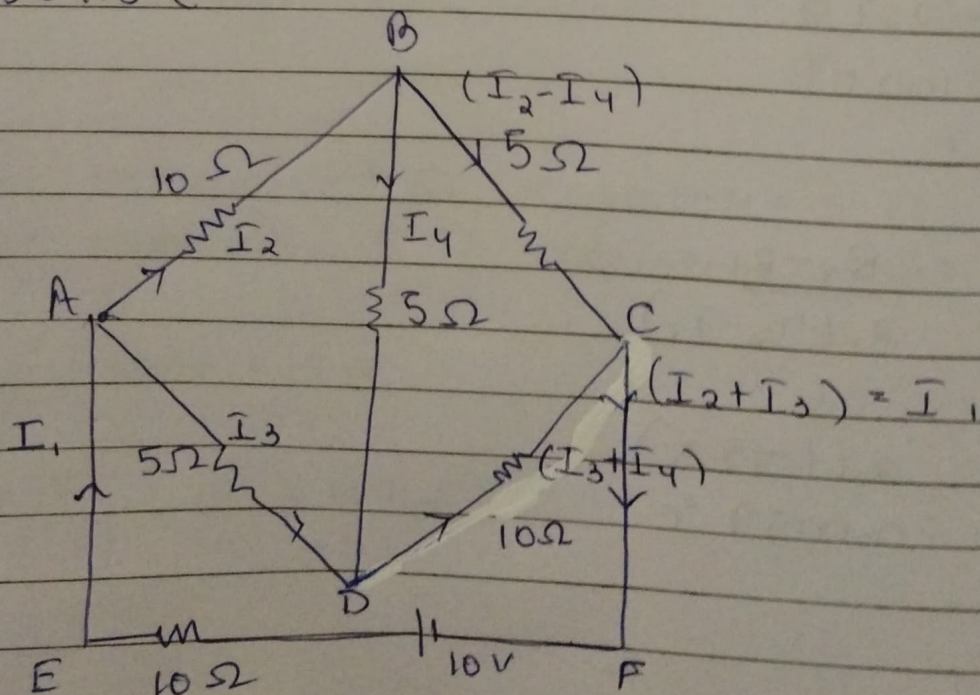 B
(I₂-I₄)
10 Ω
5 Ω
I₂
I₄
A
5 Ω
C
(I₂+I₃) = I₁
I₁
I₃
5Ω
(I₃+I₄)
10Ω
D
E
10 Ω
10 V
F